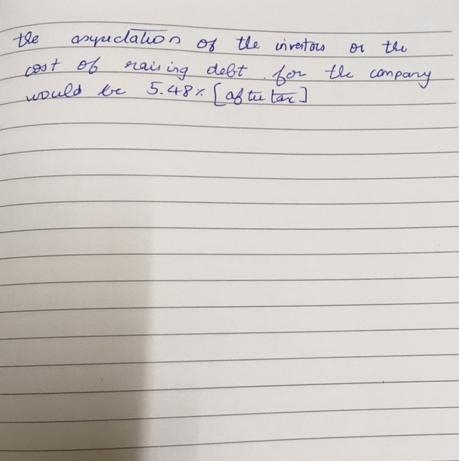 the expectation of the investors or the
cost of raising debt for the company
would be 5.48% [after tax]